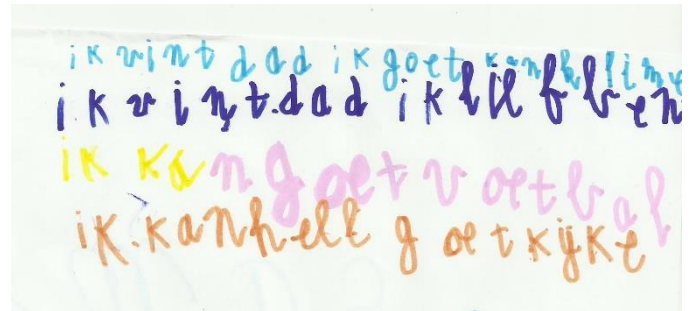 ik vint dad ik goet kan klime
ik vint dad ik lilf ben
ik kan goet voetbal
ik kan hell goet kijke